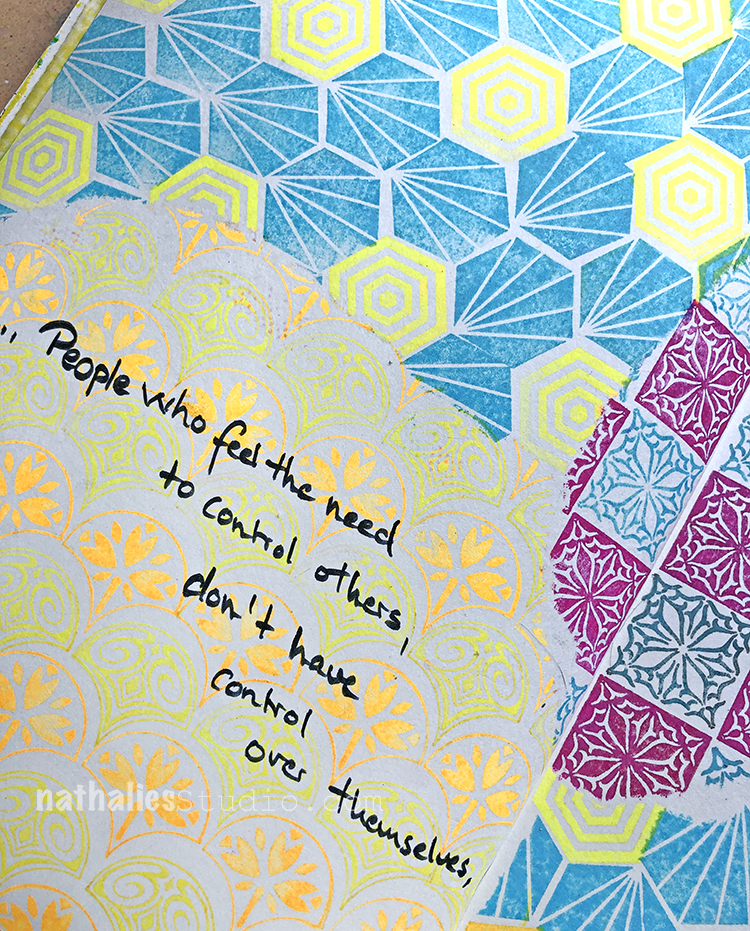 .. People who feel the need
to control others,
don't have
control
over themselves,
nathaliesstudio.com